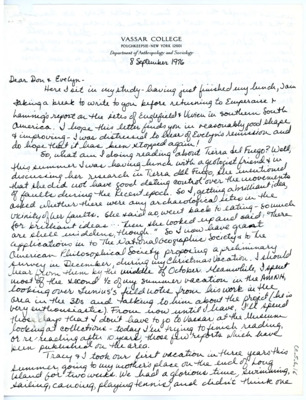 VASSAR COLLEGE
POUGHKEEPSIE · NEW YORK 12601
Department of Anthropology and Sociology
8 September 1976
Dear Don & Evelyn-
Here I sit in my study - having just finished my lunch, I am
taking a break to write to you before returning to Emperaire &
Laming's report on the sites of Englefield & Ponsonby in southern South
America. I hope this letter finds you in reasonably good shape
& improving - I was distressed to hear of Evelyn's remission, and
do hope that it has been stopped again!
So, what am I doing reading about Tierra del Fuego? Well,
this summer I was having lunch with a geologist friend & in
discussing her research in Tierra del Fuego, she mentioned
that she did not have good dating control over the movements
of faults during the Recent epoch. So I, getting a brilliant idea,
asked whether there were any archaeological sites in the
vicinity of her faults. She said no & went back to eating - so much
for brilliant ideas - Then she looked up and said: There
are shell middens, though - So I now have grant
applications in to The National Geographic Society & the
American Philosophical Society proposing a preliminary
survey in December during my Christmas vacation. I should
hear from them by the middle of October. Meanwhile, I spent
most of the second ½ of my summer vacation in the AMNH,
looking over Junius's field notes from his work in the
area in the 30s and talking to him about the project (he is
very enthusiastic). From now until I leave, I'll spend
those days that I don't have to go to Vassar at the Museum
looking at collections - today I'm trying to finish reading,
or re-reading after 10 years, those few reports which have
been published on the area.
Tracy & I took our first vacation in three years this
summer going to my mother's place on the end of Long
Island for two weeks. We had a glorious time, swimming,
sailing, canoeing, playing tennis, and didn't think one